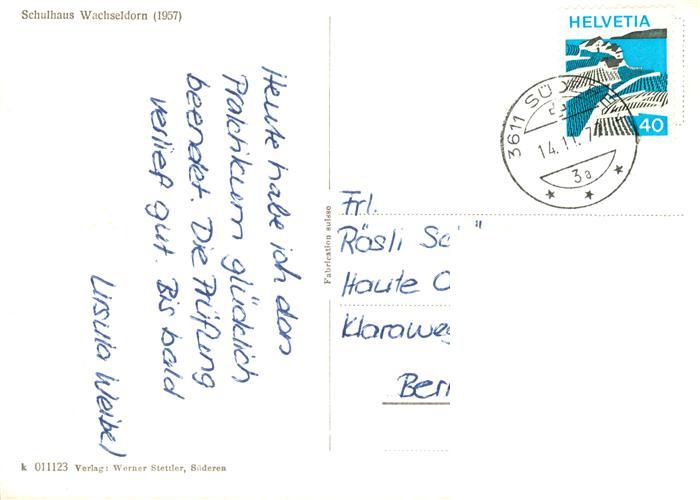 Schulhaus Wachseldorn (1957)
Heute habe ich das
Praktikum glücklich
beendet. Die Prüfung
verlief gut. Bis bald
Ursula Weibel
k 011123 Verlag: Werner Stettler, Süderen
Fabrication suisse
HELVETIA
40
3611 SÜD
14.11.7
3a
Frl.
Rösli Sc
Haute C
Klaraweg
Bern